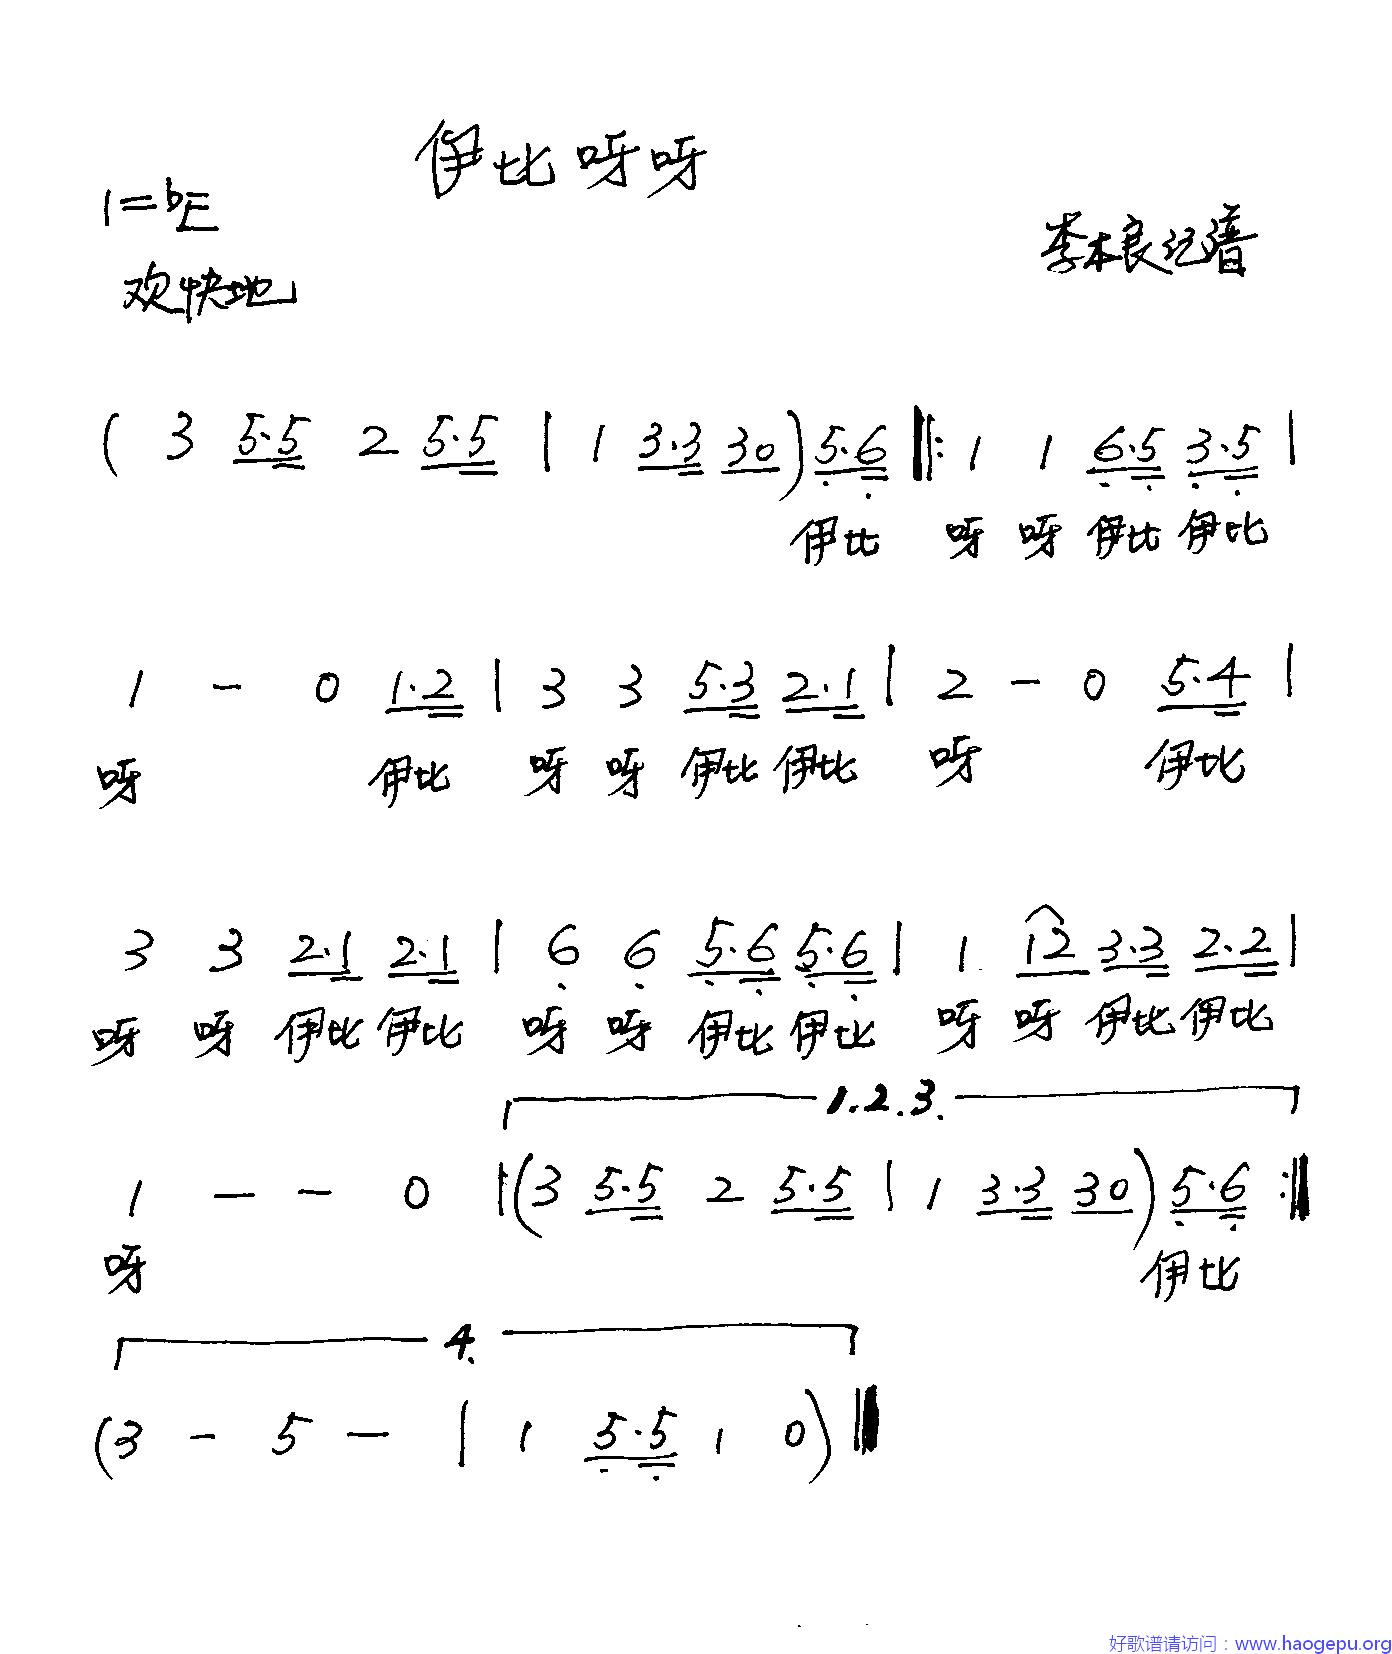 伊比呀呀
1=bE
李本良记谱
欢快地
( 3 5·5 2 5·5 | 1 3·3 30 ) 5·6 ‖: 1 1 6·5 3·5 |
伊比 呀 呀 伊比 伊比
1 - 0 1·2 | 3 3 5·3 2·1 | 2 - 0 5·4 |
呀 伊比 呀 呀 伊比 伊比 呀 伊比
3 3 2·1 2·1 | 6 6 5·6 5·6 | 1 12 3·3 2·2 |
呀 呀 伊比 伊比 呀 呀 伊比 伊比 呀 呀 伊比 伊比
1.2.3.
1 - - 0 | ( 3 5·5 2 5·5 | 1 3·3 30 ) 5·6 :‖
呀 伊比
4.
( 3 - 5 - | 1 5·5 1 0 ) ‖
好歌谱请访问：www.haogepu.org